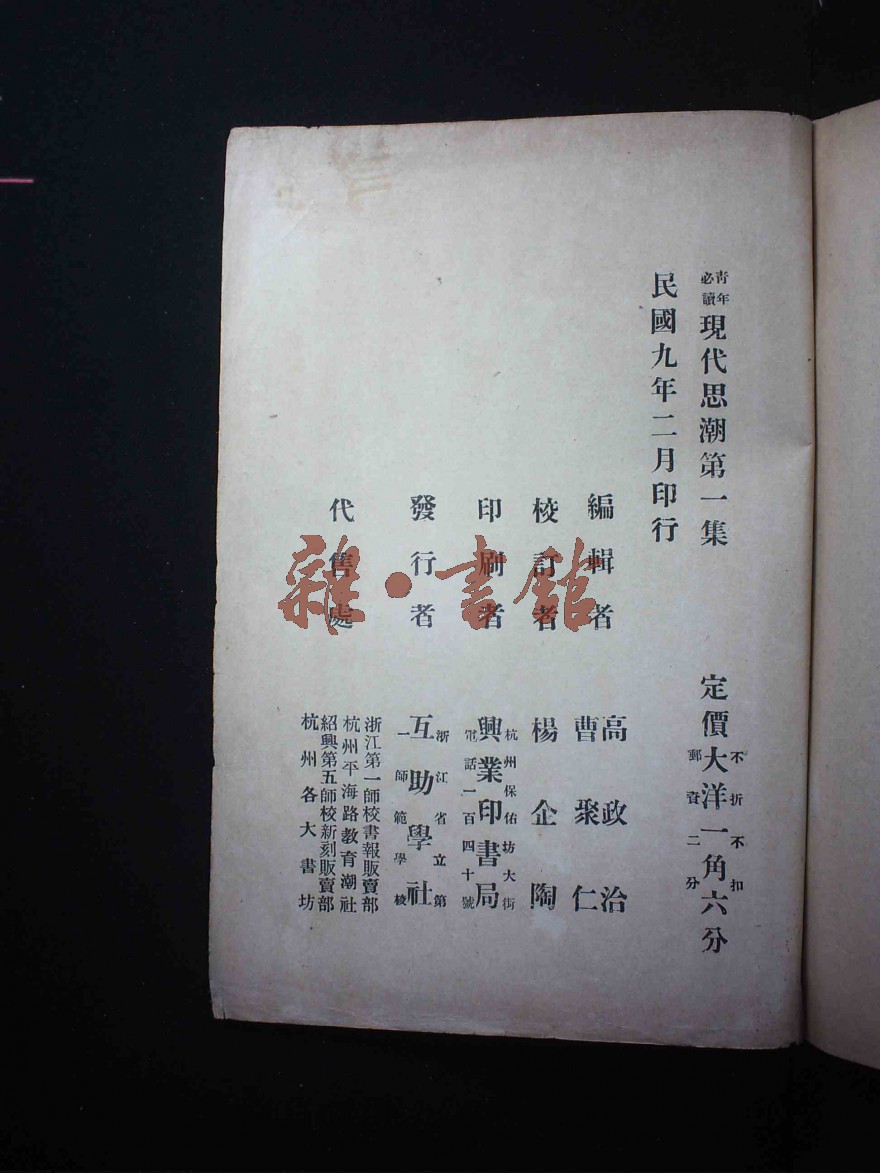 青年必讀
現代思潮第一集
定價大洋一角六分
不折不扣
郵資二分
民國九年二月印行
編輯者
高政治
曹聚仁
校訂者
楊企陶
印刷者
杭州保佑坊大街
興業印書局
電話一百四十號
發行者
浙江省立第
互助學社
一師範學校
代售處
浙江第一師校書報販賣部
杭州平海路教育潮社
紹興第五師校新刻販賣部
杭州各大書坊
雜·書館